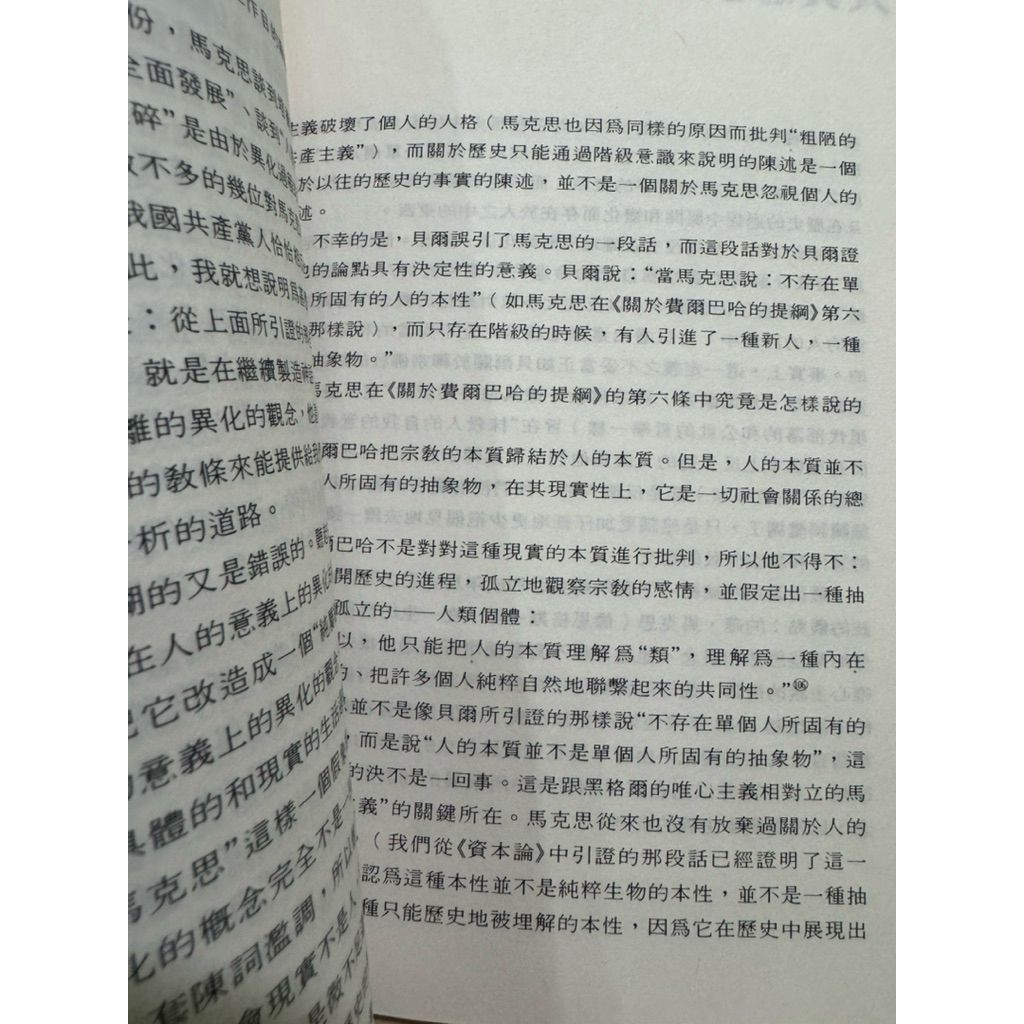 作目的
份，馬克思談到
全面發展”、談到“
碎”是由於異化
不多的幾位對馬克
我國共產黨人恰恰
此，我就想說明
：從上面所引證的
就是在繼續製造神
離的異化的觀念，
的教條來能提供給
析的道路。
的又是錯誤的。
在人的意義上的異化
它改造成一個“純
意義上的異化的觀
具體的和現實的生活
馬克思”這樣一個假
化的概念完全不是
套陳詞濫調，所以
會現實不是人
是微不
主義破壞了個人的人格（馬克思也因爲同樣的原因而批判“粗陋的
產主義”），而關於歷史只能通過階級意識來說明的陳述是一個
於以往的歷史的事實的陳述，並不是一個關於馬克思忽視個人的
述。
不幸的是，貝爾誤引了馬克思的一段話，而這段話對於貝爾證
的論點具有決定性的意義。貝爾說：“當馬克思說：不存在單
所固有的人的本性”（如馬克思在《關於費爾巴哈的提綱》第六
那樣說），而只存在階級的時候，有人引進了一種新人，一種
抽象物。”
馬克思在《關於費爾巴哈的提綱》的第六條中究竟是怎樣說的
爾巴哈把宗教的本質歸結於人的本質。但是，人的本質並不
人所固有的抽象物，在其現實性上，它是一切社會關係的總
爾巴哈不是對對這種現實的本質進行批判，所以他不得不：
開歷史的進程，孤立地觀察宗教的感情，並假定出一種抽
孤立的——人類個體：
以，他只能把人的本質理解爲“類”，理解爲一種內在
、把許多個人純粹自然地聯繫起來的共同性。”106
並不是像貝爾所引證的那樣說“不存在單個人所固有的
而是說“人的本質並不是單個人所固有的抽象物”，這
的決不是一回事。這是跟黑格爾的唯心主義相對立的馬
義”的關鍵所在。馬克思從來也沒有放棄過關於人的
（我們從《資本論》中引證的那段話已經證明了這一
認爲這種本性並不是純粹生物的本性，並不是一種抽
種只能歷史地被埋解的本性，因爲它在歷史中展現出